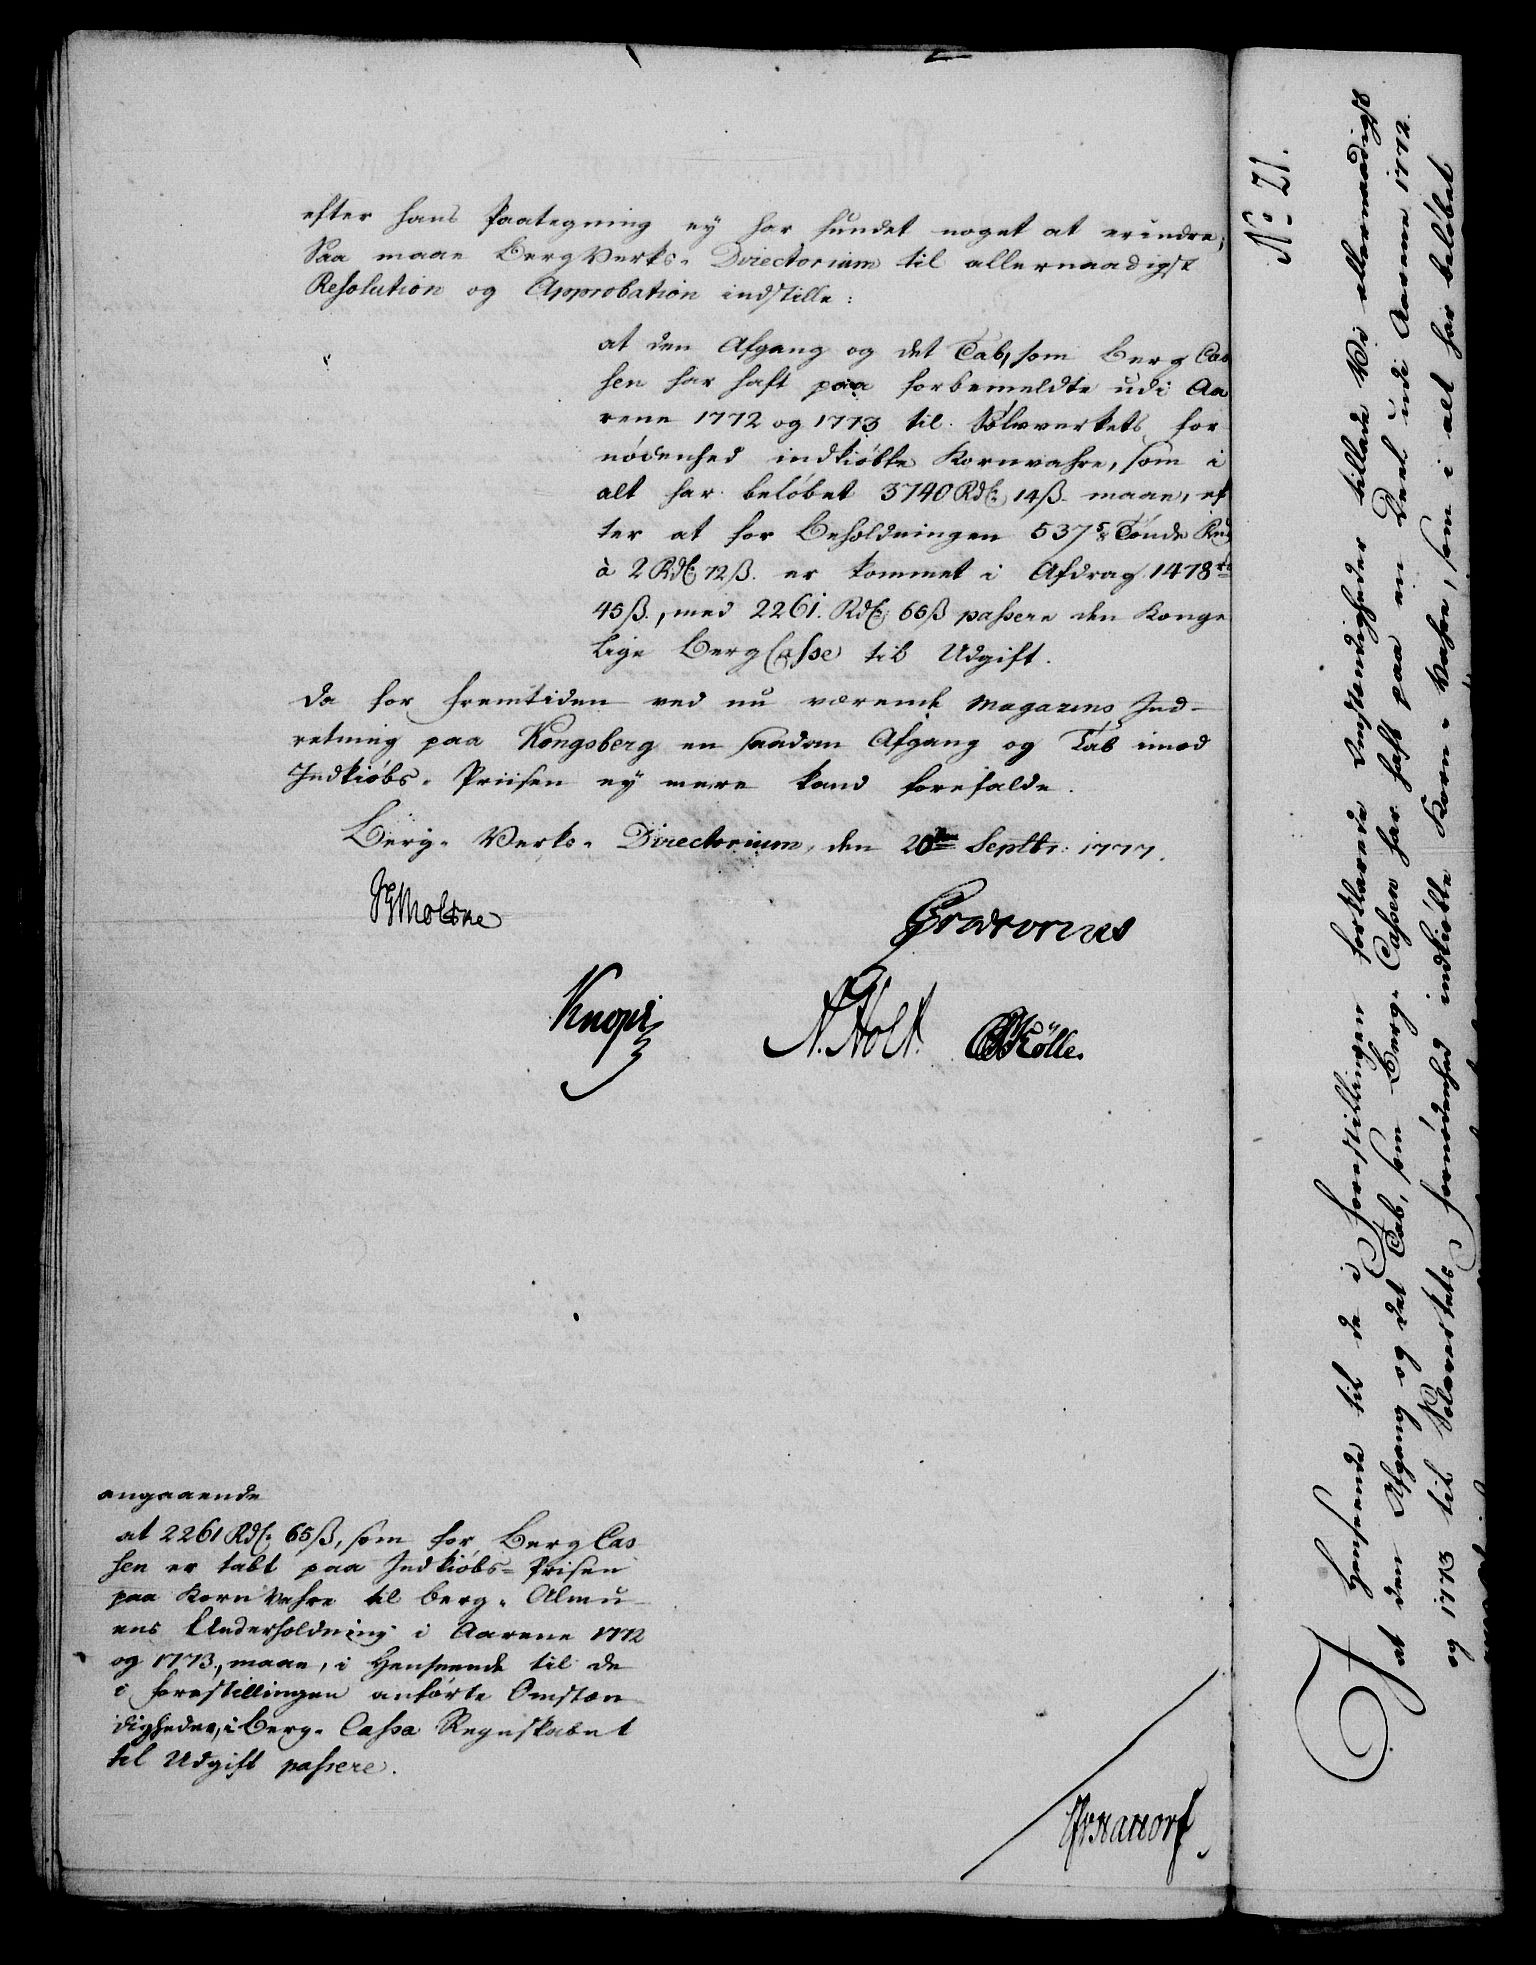 efter hans Paategning ey har fundet noget at erindre;
Saa maae BergVerks-Directorium til allernaadigst
Resolution og Approbation indstille:
at den Afgang og det Tab, som Berg Cas
sen har haft paa forbemeldte udi Aa
rene 1772 og 1773 til Sölvverkets for
nödenhed indkiöbte Kornvahre, som i
alt har belöbet 3740 Rdr 14ß maae, ef
ter at for Beholdningen 537⅝ Tönde Rug
à 2 Rdr 72ß. er kommet i Afdrag 1478 rd
45ß., med 2261. Rdr 65ß passere den Konge
lige Berg Casse til Udgift.
Da for Fremtiden ved nu værende Magazins Ind-
retning paa Kongsberg en saadan Afgang og Tab imod
Indkiöbs-Priisen ey mere kand forefalde.
Berg-Verks-Directorium, den 20de Septbr: 1777.
Moltke Prætorius
Knoph N. Holt. Kölle.
angaaende
at 2261 Rdr 65ß, som for Berg Cas
sen er tabt paa Indkiöbs-Prisen
paa Korn Vahre til Berg-Almu-
ens Underholdning i Aarene 1772
og 1773, maae, i Henseende til de
i Forestillingen anförte Omstæn
digheder, i Berg-Cassa Regnskabet
til Udgift passere.
No 21.
I Henseende til de i Forestillingen forklarede Omstændigheder tillade Vi allernaadigst
at den Afgang og det Tab, som Berg-Cassen har haft paa en Deel udi Aarene 1772.
og 1773 til Sölvverkets Fornödenhed indkiöbte Korn-Vahre, som i alt har belöbet